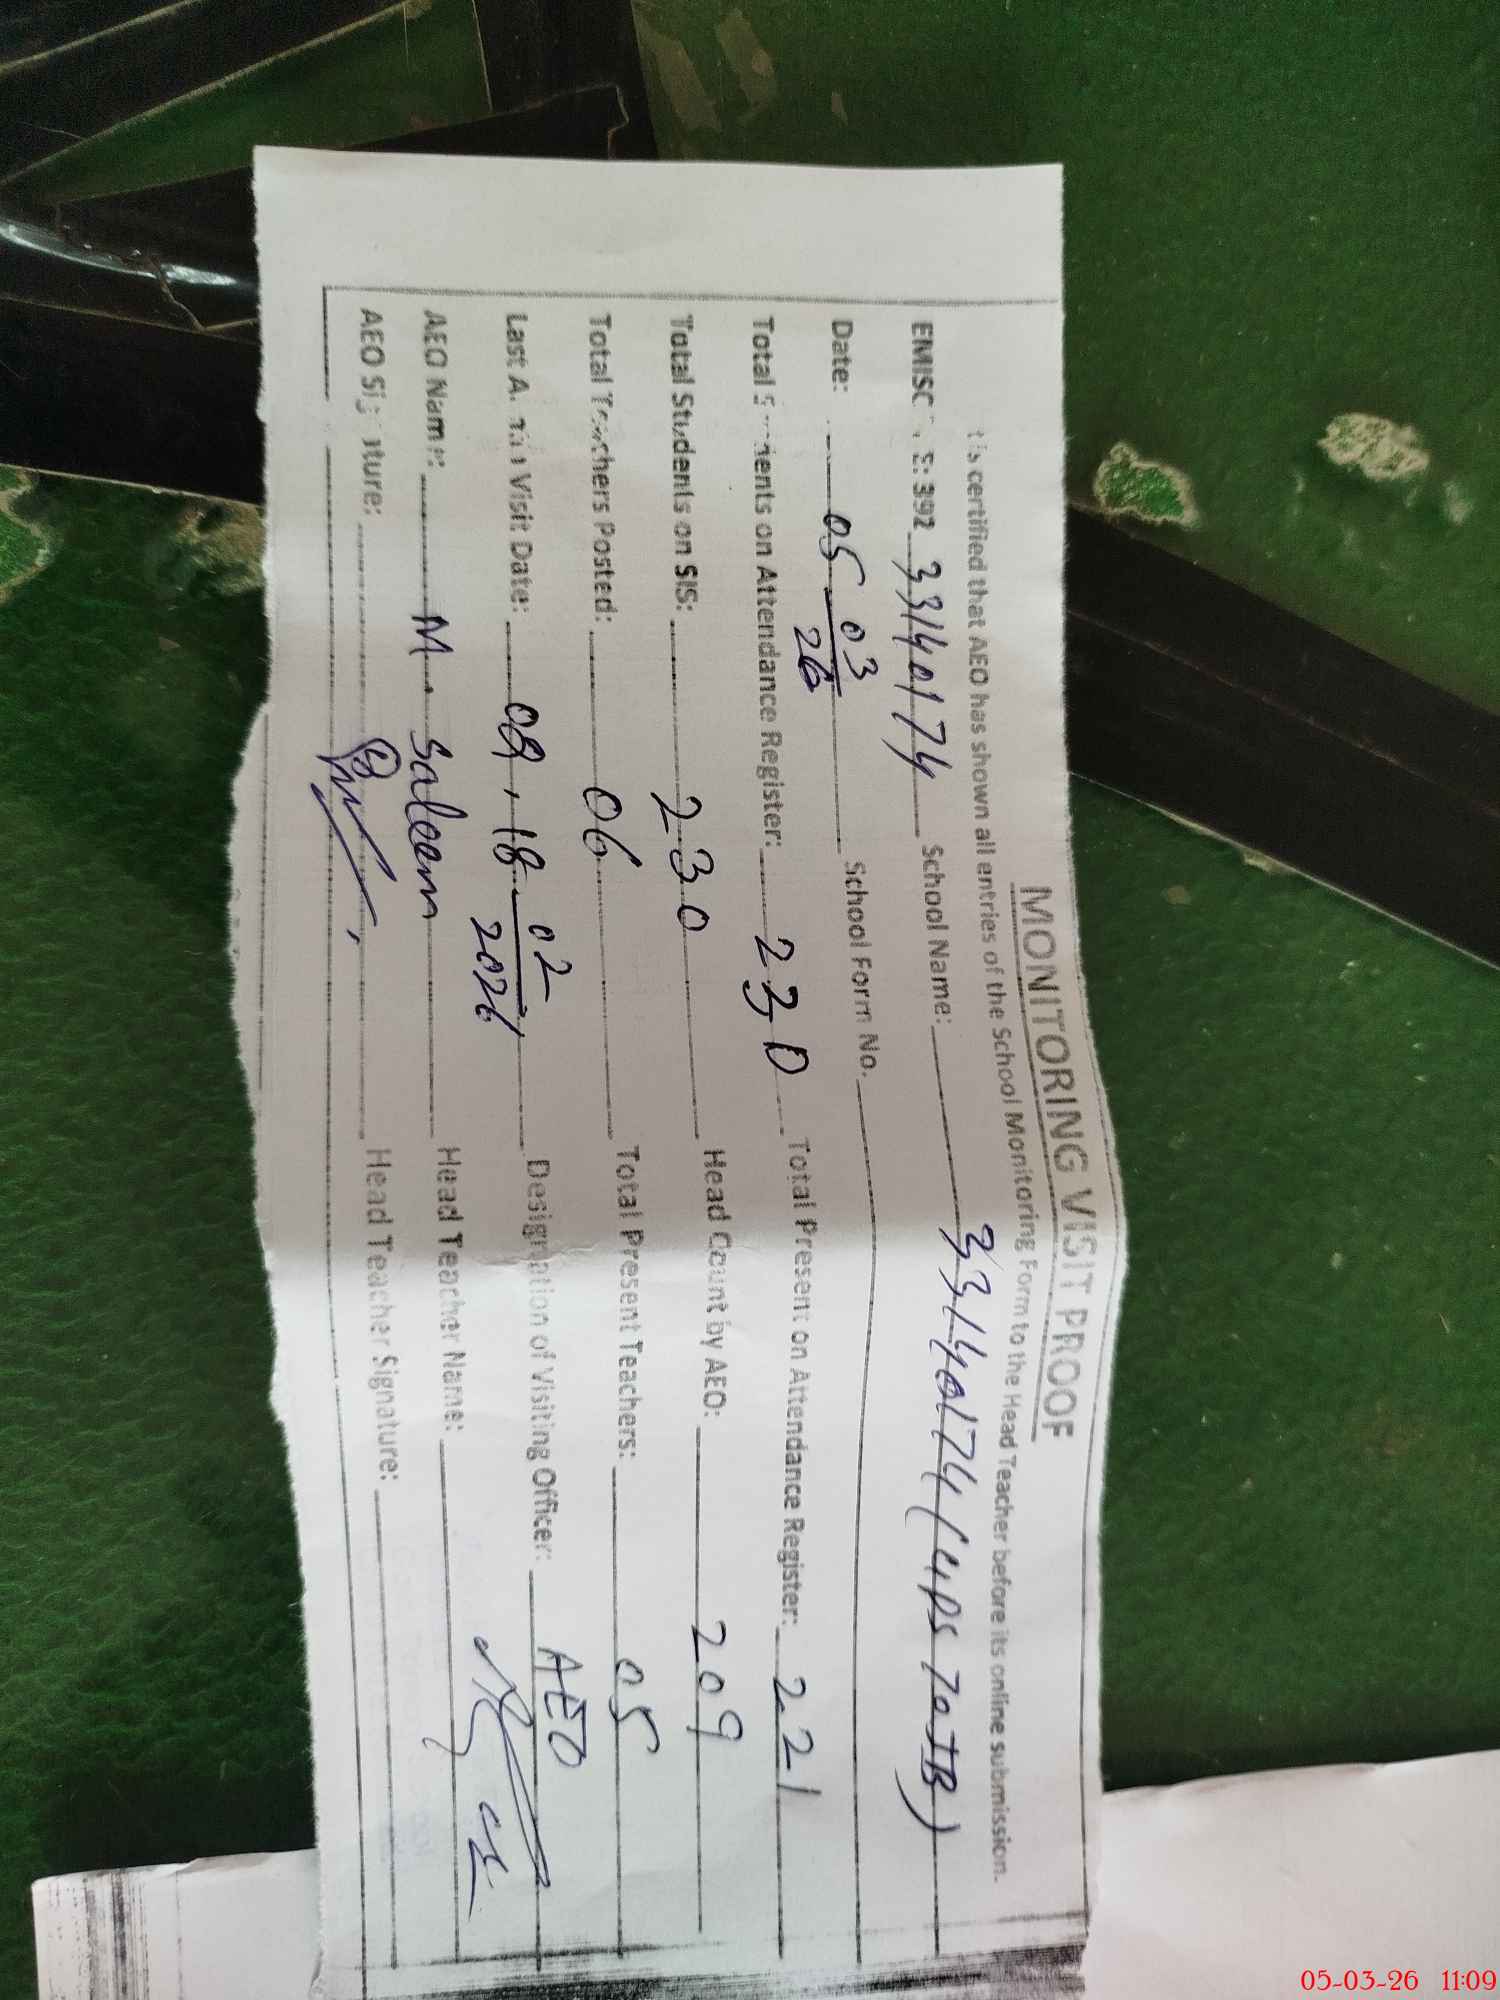 MONITORING VISIT PROOF
t is certified that AEO has shown all entries of the School Monitoring Form to the Head Teacher before its online submission.
EMISC E: 392 33140174 School Name: 33140174 (
Date: 05 03 26 School Form No.
Total Students on Attendance Register: 230 Total Present on Attendance Register: 221
Total Students on SIS: 230 Head Count by AEO: 209
Total Teachers Posted: 06 Total Present Teachers: 05
Last Visit Date: 09, 18 02 2026 Designation of Visiting Officer: AEO
AEO Name: M. Saleem Head Teacher Name:
AEO Signature: Head Teacher Signature:
05-03-26 11:09